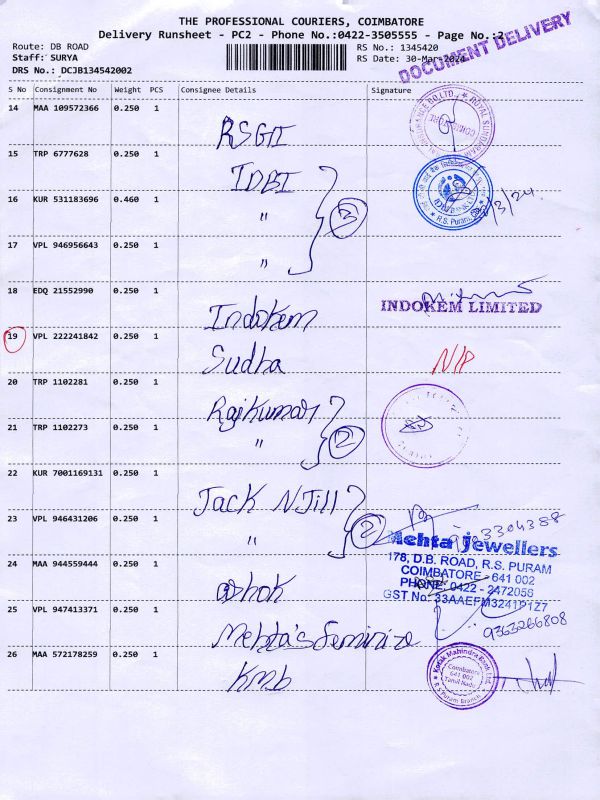 THE PROFESSIONAL COURIERS, COIMBATORE
Delivery Runsheet - PC2 - Phone No.:0422-3505555 - Page No.:2
DOCUMENT DELIVERY
Route: DB ROAD
RS No.: 1345420
Staff: SURYA
RS Date: 30-Mar-2024
DRS No.: DCJB134542002
S No Consignment No Weight PCS Consignee Details Signature
14 MAA 109572366 0.250 1
RSGI
15 TRP 6777628 0.250 1
IDBI
16 KUR 531183696 0.460 1
" 3
R.S. Puram
/3/24
17 VPL 946956643 0.250 1
"
18 EDQ 21552990 0.250 1
Indokem
INDOKEM LIMITED
19 VPL 222241842 0.250 1
Sudha
N/P
20 TRP 1102281 0.250 1
Rajkumar
21 TRP 1102273 0.250 1
" 2
22 KUR 7001169131 0.250 1
Jack N Jill
23 VPL 946431206 0.250 1
" 2
3304388
Mehta jewellers
178, D.B. ROAD, R.S. PURAM
COIMBATORE - 641 002
PHONE: 0422 - 2472056
GST No: 33AAEFM3241P1Z7
24 MAA 944559444 0.250 1
Ashok
25 VPL 947413371 0.250 1
Mehta's Feminize
9363266808
26 MAA 572178259 0.250 1
KMB
Kotak Mahindra Bank Ltd.
Coimbatore
641 002
Tamil Nadu
R.S Puram Branch